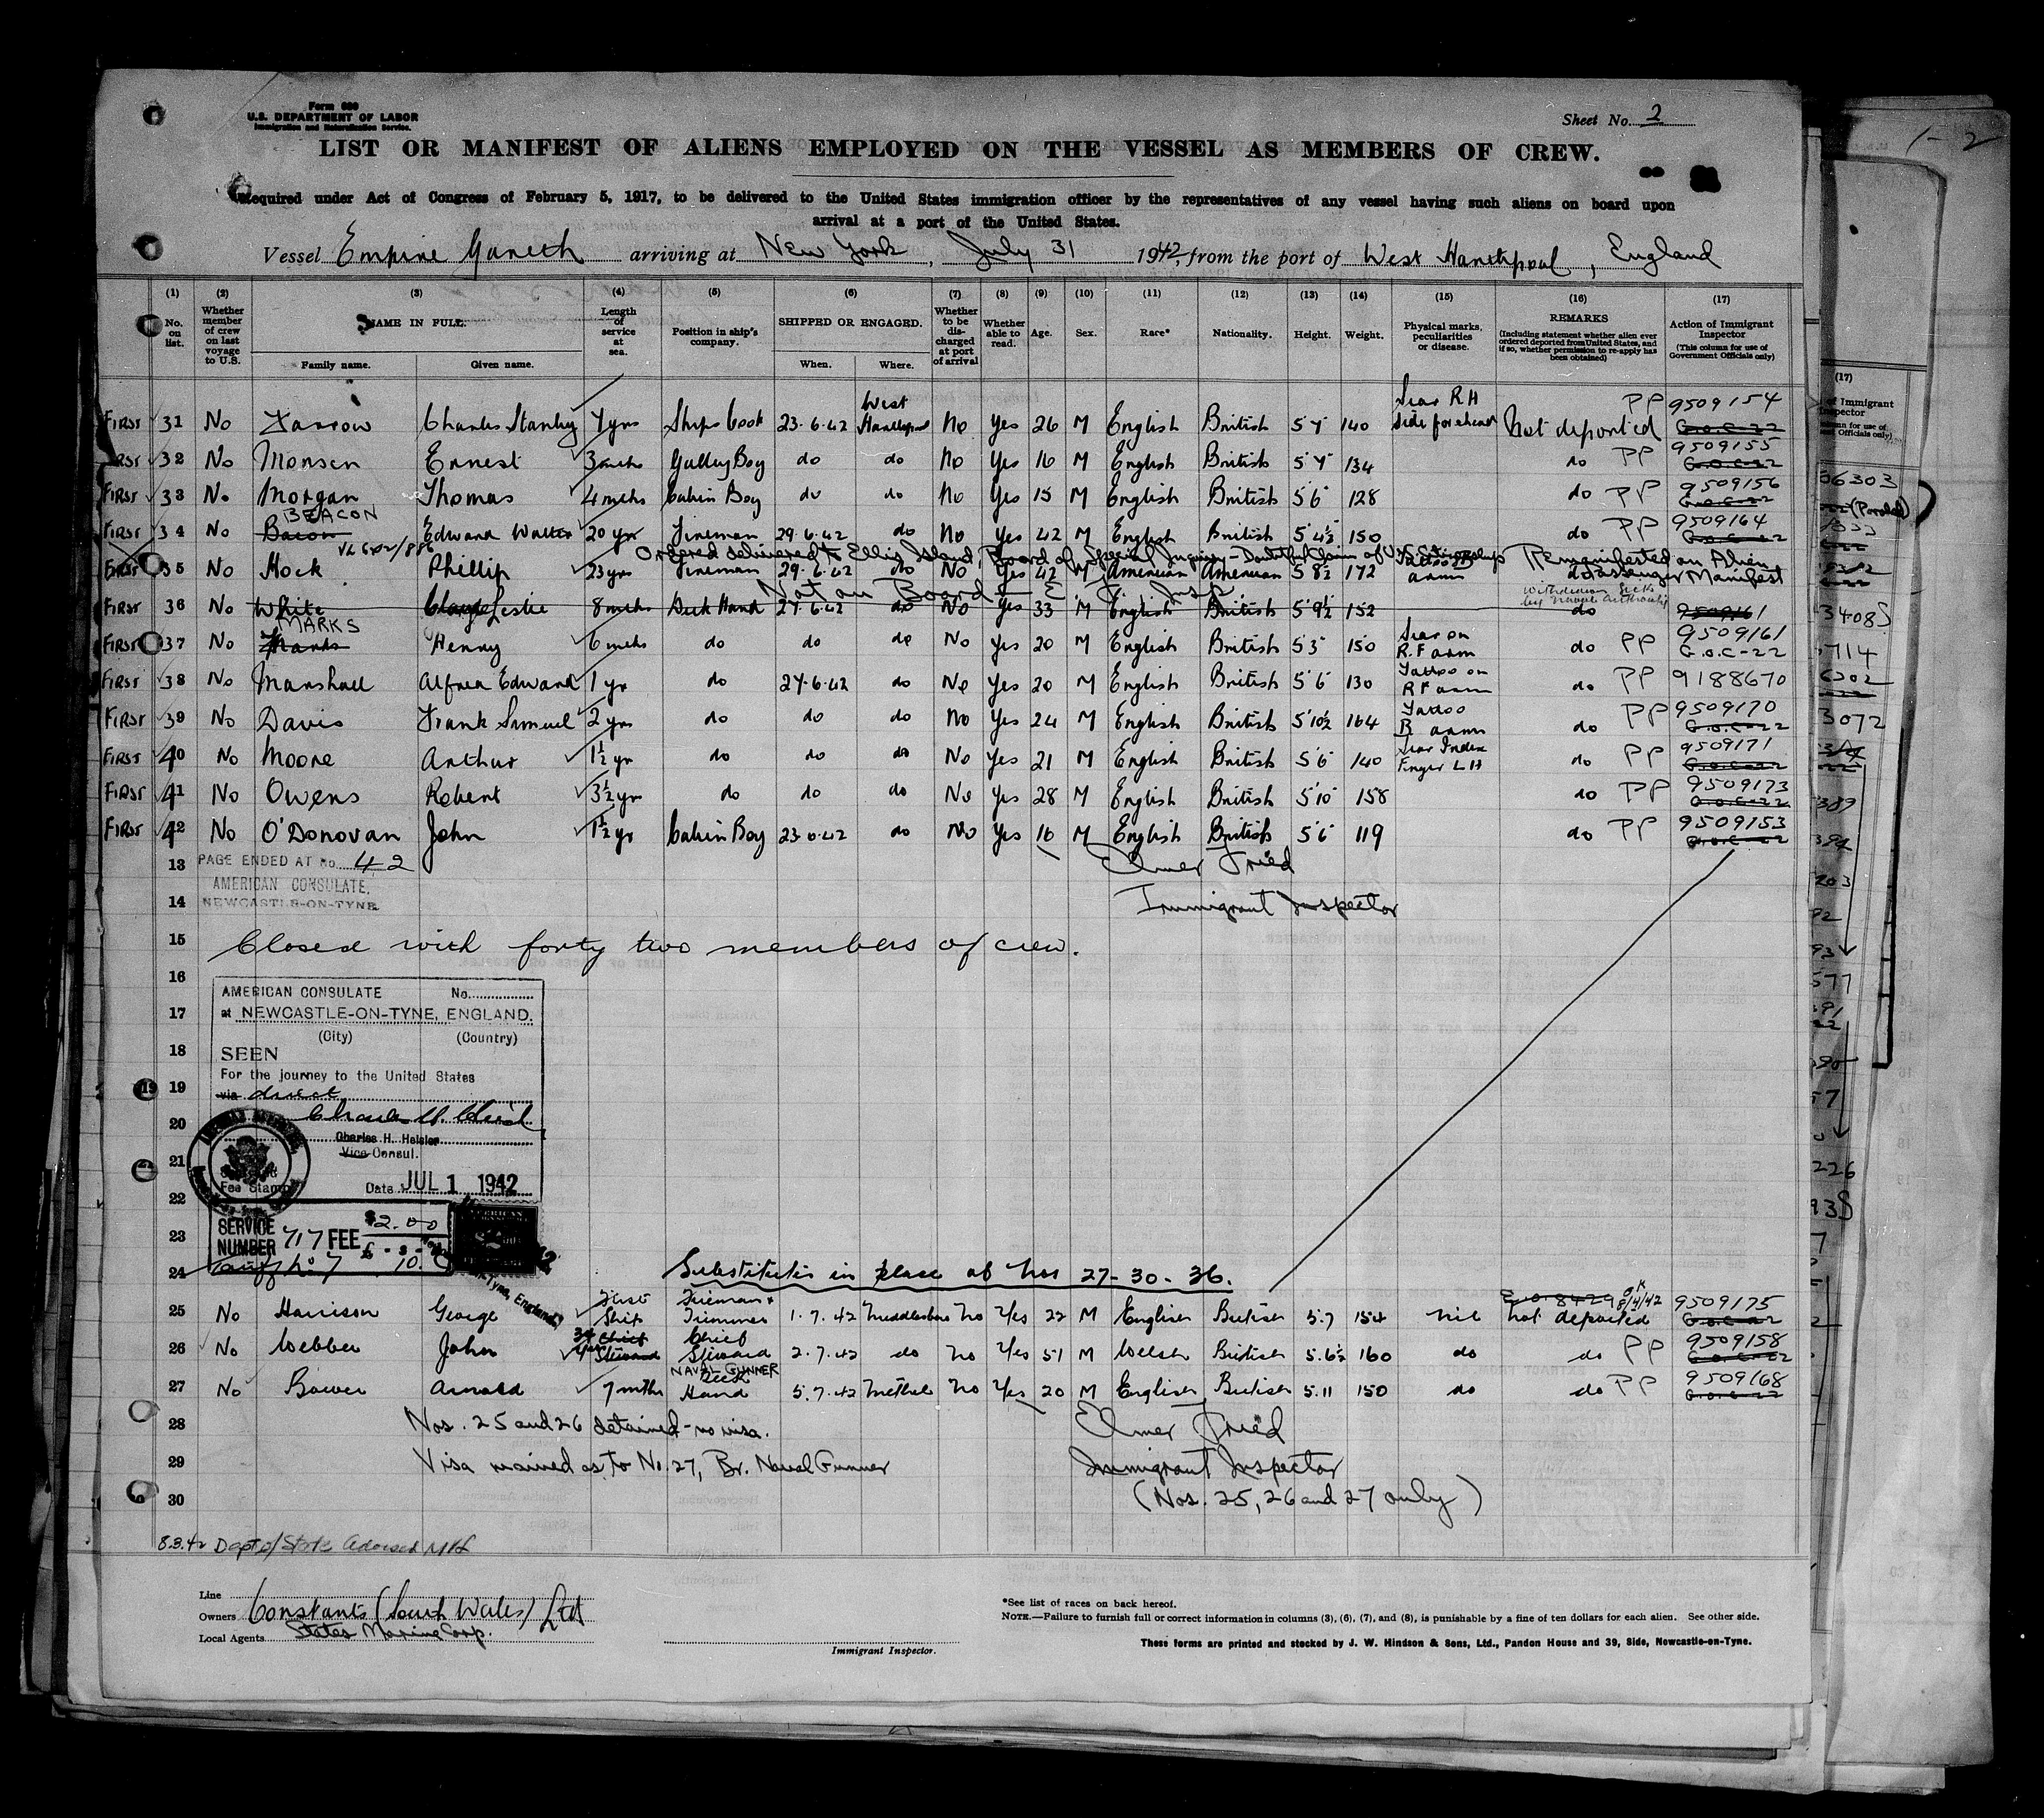 Form 680
U.S. DEPARTMENT OF LABOR
Immigration and Naturalization Service.
Sheet No. 2
1-2
LIST OR MANIFEST OF ALIENS EMPLOYED ON THE VESSEL AS MEMBERS OF CREW.
Required under Act of Congress of February 5, 1917, to be delivered to the United States immigration officer by the representatives of any vessel having such aliens on board upon
arrival at a port of the United States.
Vessel Empire Gareth arriving at New York, July 31 1942, from the port of West Hartlepool, England
(1) (2) (3) (4) (5) (6) (7) (8) (9) (10) (11) (12) (13) (14) (15) (16) (17)
No. on list. Whether member of crew on last voyage to U.S. NAME IN FULL. Length of service at sea. Position in ship's company. SHIPPED OR ENGAGED. Whether to be discharged at port of arrival Whether able to read. Age. Sex. Race* Nationality. Height. Weight. Physical marks, peculiarities or disease. REMARKS (Including statement whether alien ever ordered deported from United States, and if so, whether permission to re-apply has been obtained) Action of Immigrant Inspector (This column for use of Government Officials only)
Family name. Given name. When. Where.
First 31 No Charles Stanley 7 yrs Ships Cook 23.6.42 West Hartlepool No Yes 26 M English British 5 7 140 Scar R H Side forehead Not deported PP 9509154 G.O.C-22
First 32 No Monsen Ernest 3 mths Galley Boy do do No Yes 16 M English British 5 7 134 do PP 9509155 G.O.C-22
First 33 No Morgan Thomas 4 mths Cabin Boy do do No Yes 15 M English British 5 6 128 do PP 9509156 G.O.C-22
BEACON
First 34 No Bacon Edward Walter 20 yr Fireman 29.6.42 do No Yes 42 M English British 5 4½ 150 do PP 9509164 G.O.C-22
Ordered delivered to Ellis Island, Board of Special Inquiry - Doubtful Claim of U.S. Citizenship Remanifested on Alien Passenger Manifest
First 35 No Hock Phillip 23 yrs Fireman 29.6.42 do No Yes 42 M American American 5 8½ 172 do
Not on Board
First 36 No White Leslie 8 mths Deck Hand 27.6.42 do No Yes 33 M English British 5 9½ 152 do 9509161
MARKS
First 37 No Marks Henry 6 mths do do do No Yes 20 M English British 5 3 150 Scar on R.F arm do PP 9509161 G.O.C-22
First 38 No Marshall Alfred Edward 1 yr do 27.6.42 do No Yes 20 M English British 5 6 130 Tattoo on R F arm do PP 9188670
First 39 No Davis Frank Samuel 2 yrs do do do No Yes 24 M English British 5 10½ 164 Tattoo R arm do PP 9509170 G.O.C-22
First 40 No Moore Arthur 1½ yr do do do No Yes 21 M English British 5 6 140 Scar Index Finger L H do PP 9509171 G.O.C-22
First 41 No Owens Robert 3½ yr do do do No Yes 28 M English British 5 10 158 do PP 9509173 G.O.C-22
First 42 No O'Donovan John 1½ yr Cabin Boy 23.6.42 do No Yes 16 M English British 5 6 119 do PP 9509153 G.O.C-22
13 PAGE ENDED AT No. 42
Elmer Fried
AMERICAN CONSULATE,
14 NEWCASTLE-ON-TYNE.
Immigrant Inspector
15 Closed with forty two members of crew.
16
AMERICAN CONSULATE No.
17 at NEWCASTLE-ON-TYNE, ENGLAND.
(City) (Country)
18 SEEN
For the journey to the United States
19 via direct
20
Charles H. Heisler
Vice Consul.
21
Fee Stamp
Date JUL 1 1942
22
SERVICE NUMBER 717 FEE $2.00
23
24
Substitutes in place of Nos 27-30-36.
25 No Harrison George First Ship Fireman + Trimmer 1.7.42 Middlesbro No Yes 22 M English British 5.7 154 nil not deported 8/4/42 9509175 G.O.C-22
26 No Webber John Chief Steward 2.7.42 do No Yes 51 M Welsh British 5.6½ 160 do do PP 9509158 G.O.C-22
NAVAL GUNNER
27 No Bower Arnold 7 mths Deck Hand 5.7.42 Methil No Yes 20 M English British 5.11 150 do do PP 9509168 G.O.C-22
28 Nos. 25 and 26 detained - no visa.
Elmer Fried
29 Visa waived as to No. 27, Br. Naval Gunner
Immigrant Inspector
30 (Nos. 25, 26 and 27 only)
8.3.42 Dept of State Advised
Line
Owners Constants (South Wales) Ltd
Local Agents States Marine Corp.
Immigrant Inspector.
*See list of races on back hereof.
NOTE.—Failure to furnish full or correct information in columns (3), (6), (7), and (8), is punishable by a fine of ten dollars for each alien. See other side.
These forms are printed and stocked by J. W. Hindson & Sons, Ltd., Pandon House and 39, Side, Newcastle-on-Tyne.